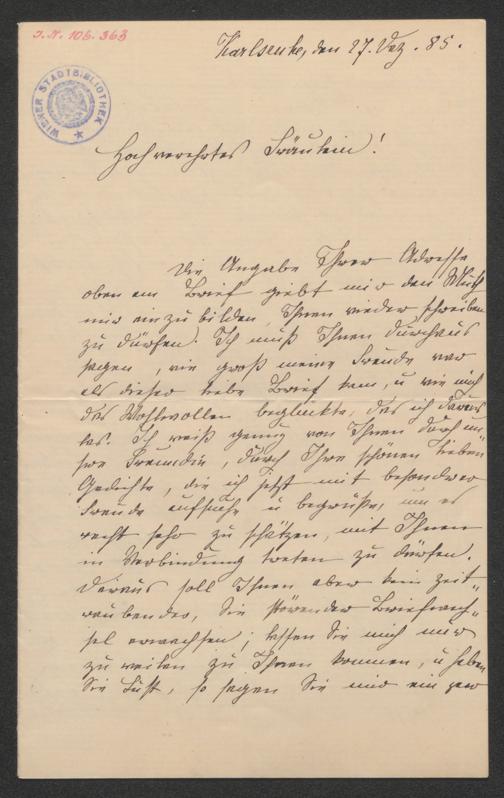 J. N. 106.363
WIENER STADTBIBLIOTHEK
Karlsruhe, den 27. Dez. 85.
Hochverehrtes Fräulein!
Die Angabe Ihrer Adresse
oben am Brief giebt mir den Muth
mir einzubilden, Ihnen wieder schreiben
zu dürfen. Ich muß Ihnen durchaus
sagen, wie groß meine Freude war
als dieser liebe Brief kam, u wie mich
das Wohlwollen beglückte, das ich daraus
las. Ich weiß genug von Ihnen durch un„
sre Freundin, durch Ihre schönen lieben
Gedichte, die ich jetzt mit besondrer
Freude aufsuche u begrüße, um es
recht sehr zu schätzen, mit Ihnen
in Verbindung treten zu dürfen.
Daraus soll Ihnen aber kein zeit„
raubender, Sie störender Briefwech„
sel erwachsen; lassen Sie mich nur
zu weilen zu Ihnen kommen, u haben
Sie Lust, so sagen Sie mir ein paar